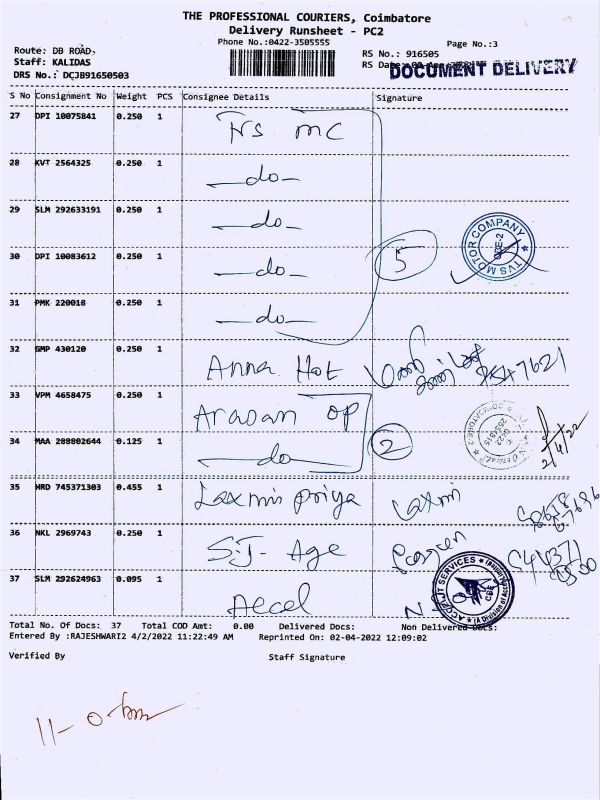 THE PROFESSIONAL COURIERS, Coimbatore
Delivery Runsheet - PC2
Phone No.:0422-3505555
Page No.:3
Route: DB ROAD,
RS No.: 916505
Staff: KALIDAS
RS Date:
DOCUMENT DELIVERY
DRS No.: DCJB91650503
S No Consignment No Weight PCS Consignee Details Signature
27 DPI 10075841 0.250 1 TVS MC
28 KVT 2564325 0.250 1 —do—
29 SLM 292633191 0.250 1 —do—
30 DPI 10083612 0.250 1 —do—
5
TVS MOTOR COMPANY
31 PMK 220018 0.250 1 —do—
32 GMP 430120 0.250 1 Anna Hot
33 VPM 4658475 0.250 1 Aravan OP
34 MAA 288802644 0.125 1 —do—
2
2/4/22
35 HRD 745371303 0.455 1 Laxmi priya Laxmi
36 NKL 2969743 0.250 1 S.J- Age
37 SLM 292624963 0.095 1 Accel
ACCEL IT SERVICES
CBE
Total No. Of Docs: 37 Total COD Amt: 0.00 Delivered Docs: Non Delivered Docs:
Entered By :RAJESHWARI2 4/2/2022 11:22:49 AM Reprinted On: 02-04-2022 12:09:02
Verified By Staff Signature